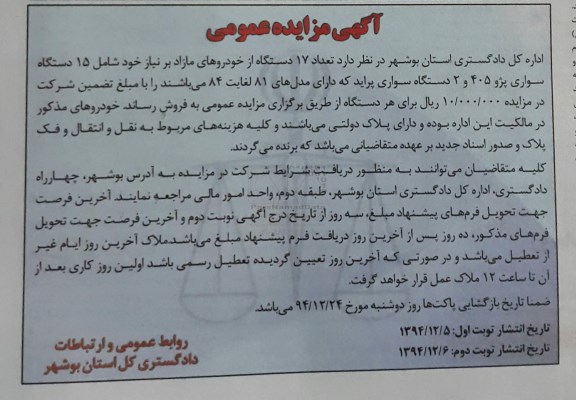 آگهی مزایده عمومی
اداره کل دادگستری استان بوشهر در نظر دارد تعداد ۱۷ دستگاه از خودروهای مازاد بر نیاز خود شامل ۱۵ دستگاه
سواری پژو ۴۰۵ و ۲ دستگاه سواری پراید که دارای مدل‌های ۸۱ لغایت ۸۴ می‌باشند را با مبلغ تضمین شرکت
در مزایده ۱۰/۰۰۰/۰۰۰ ریال برای هر دستگاه از طریق برگزاری مزایده عمومی به فروش رساند. خودروهای مذکور
در مالکیت این اداره بوده و دارای پلاک دولتی می‌باشند و کلیه هزینه‌های مربوط به نقل و انتقال و فک
پلاک و صدور اسناد جدید بر عهده متقاضیانی می‌باشد که برنده می‌گردند.
کلیه متقاضیان می‌توانند به منظور دریافت شرایط شرکت در مزایده به آدرس بوشهر، چهارراه
دادگستری، اداره کل دادگستری استان بوشهر، طبقه دوم، واحد امور مالی مراجعه نمایند. آخرین فرصت
جهت تحویل فرم‌های پیشنهاد مبلغ، سه روز از تاریخ درج آگهی نوبت دوم و آخرین فرصت جهت تحویل
فرم‌های مذکور، ده روز پس از آخرین روز دریافت فرم پیشنهاد مبلغ می‌باشد.ملاک آخرین روز ایام غیر
از تعطیل می‌باشد و در صورتی که آخرین روز تعیین گردیده تعطیل رسمی باشد اولین روز کاری بعد از
آن تا ساعت ۱۲ ملاک عمل قرار خواهد گرفت.
ضمنا تاریخ بازگشایی پاکت‌ها روز دوشنبه مورخ ۹۴/۱۲/۲۴ می‌باشد.
تاریخ انتشار نوبت اول: ۱۳۹۴/۱۲/۵
تاریخ انتشار نوبت دوم: ۱۳۹۴/۱۲/۶
روابط عمومی و ارتباطات
دادگستری کل استان بوشهر